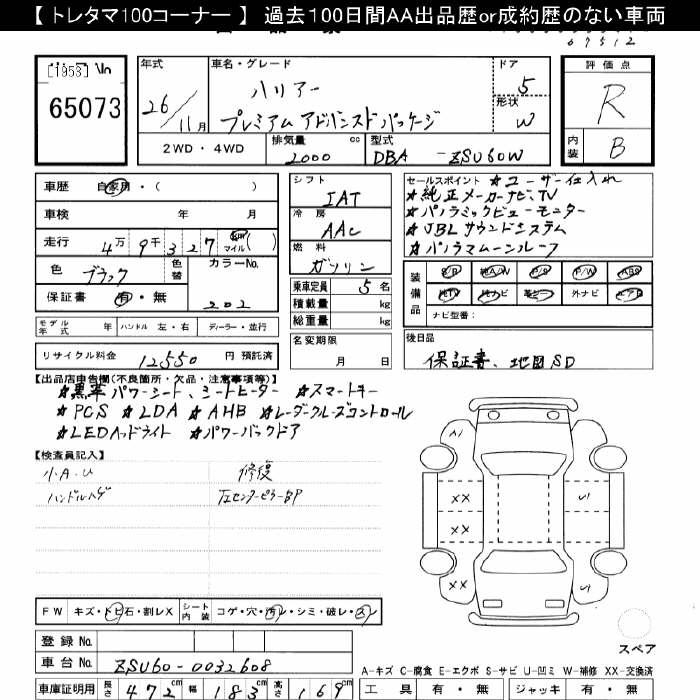 【 トレタマ100コーナー 】 過去100日間AA出品歴or成約歴のない車両
67512
[1953]
65073
年式
26/11月
車名・グレード
ハリアー
プレミアム アドバンスド パッケージ
ドア
5
形状
W
評価点
R
内装
B
2WD ・ 4WD
排気量
2000 cc
型式
DBA - ZSU60W
車歴 自家用・( )
車検 年 月
走行 4万9千327 km マイル( )
色 ブラック
色替
カラーNo.
202
保証書 有・無
モデル年式 年 ハンドル 左・右 ディーラー・並行
リサイクル料金 12550 円 預託済
シフト
IAT
冷房
AAC
燃料
ガソリン
乗車定員 5名
積載量 kg
総重量 kg
名変期限
月 日
セールスポイント ★ユーザー仕入れ
★純正メーカーナビ、TV
★パノラミックビューモニター
★JBLサウンドシステム
★パノラマムーンルーフ
装備品
S/R 純A/W P/S P/W ABS
純TV 純ナビ 革シート 外ナビ エアB
ナビ型番:
後日品
保証書、地図SD
【出品店申告欄(不良箇所・欠品・注意事項等)】
★黒革パワーシート、シートヒーター ★スマートキー
★PCS ★LDA ★AHB ★レーダークルーズコントロール
★LEDヘッドライト ★パワーバックドア
【検査員記入】
小A.U 修復
ハンドルハゲ 左センターピラーBP
A1
XX
XX
XX
U1
U1
FW キズ・トビ石・割レX シート内装 コゲ・穴・汚レ・シミ・破レ・スレ
登録 No.
車台 No. ZSU60-0032608
車庫証明用 長さ 472cm 幅 183cm 高さ 169cm
スペア
A-キズ C-腐食 E-エクボ S-サビ U-凹ミ W-補修 XX-交換済
工具 有・無 ジャッキ 有・無